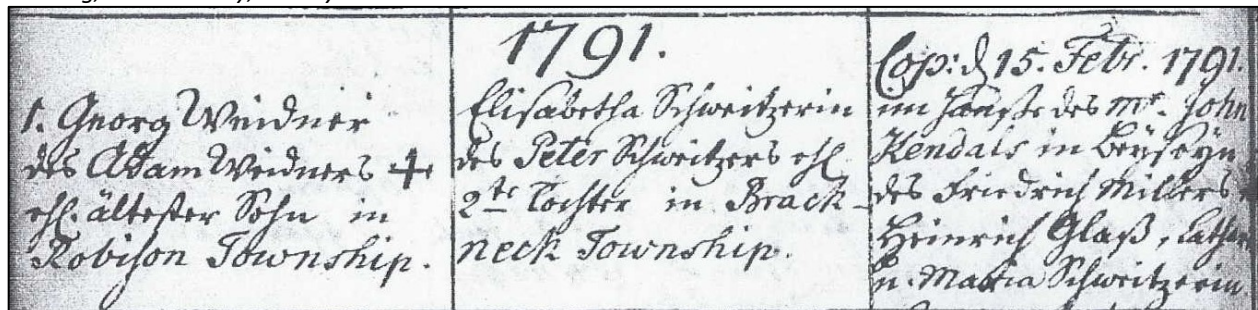 1. Georg Weidner
des Adam Weidners +
ehl. ältester Sohn in
Robison Township.
1791.
Elisabetha Schweitzerin
des Peter Schweitzers ehl.
2te Tochter in Brack-
neck Township.
Cop: d 15. Febr. 1791.
im Hauße des Mr. John
Kendals in Beyseyn
des Friedrich Millers
Heinrich Glaß, Cathar
u. Maria Schweitzerin